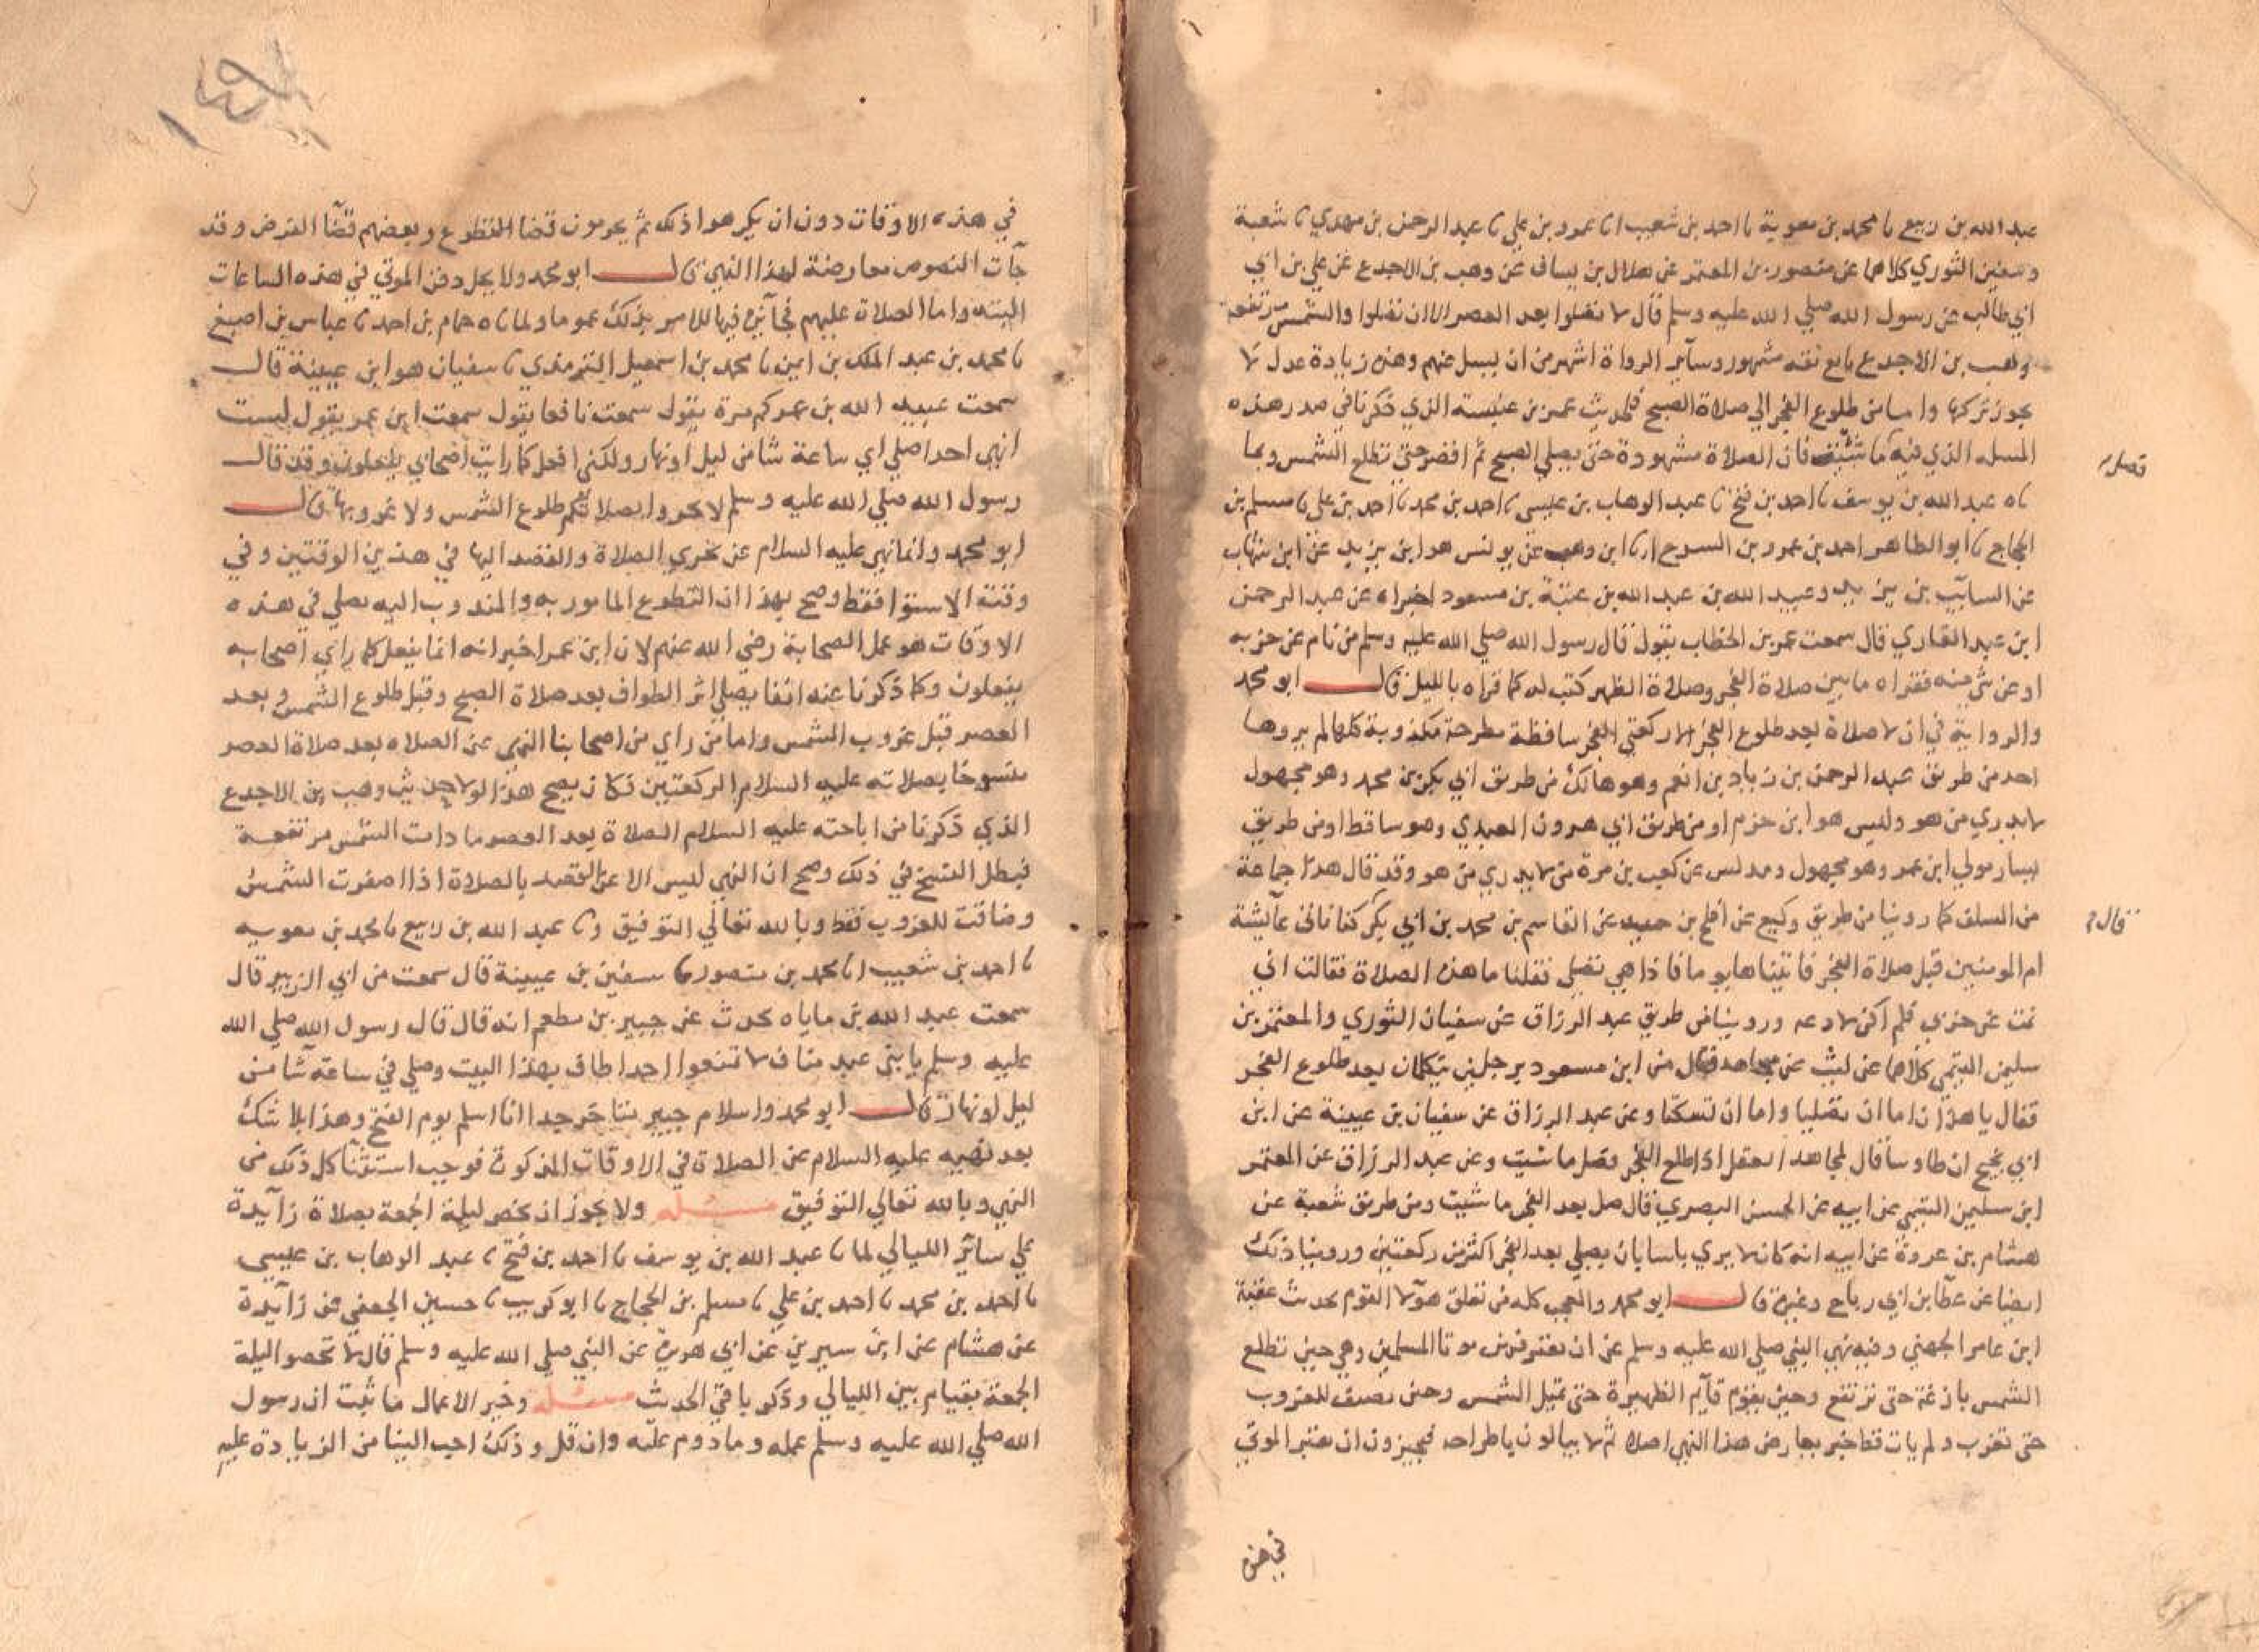 عبد الله بن ربيع نا محمد بن معوية نا احمد بن شعيب انا عمرو بن علي نا عبد الرحمن بن مهدي نا شعبة
وسفين الثوري كلاهما عن منصور بن المعتمر عن هلال بن يساف عن وهب بن الاجدع عن علي بن ابي
ابي طالب عن رسول الله صلي الله عليه وسلم قال لا تصلوا بعد العصر الا ان تصلوا والشمس مرتفعة
وهب بن الاجدع تابع ثقه مشهور وسآير الرواة اشهر من ان يسل عنهم وهذه زيادة عدل لا
يجوز تركها واما من طلوع الفجر الي صلاة الصبح فلحديث عمرو بن عبسة الذي ذكرنا في صدر هذه
المسله الذي فيه ما شئت فان الصلاة مشهودة حتى يصلي الصبح ثم اقصر حتى تطلع الشمس وبما
فصل
ناه عبد الله بن يوسف نا احمد بن فتح نا عبد الوهاب بن عيسى نا احمد بن محمد نا احمد بن علي نا مسلم بن
الحجاج نا ابو الطاهر احمد بن عمرو بن السرح انا ابن وهب عن يونس هو ابن يزيد عن ابن شهاب
عن السايب بن يزيد وعبيد الله بن عبد الله بن عتبة بن مسعود اخبراه عن عبد الرحمن
ابن عبد القاري قال سمعت عمر بن الخطاب يقول قال رسول الله صلي الله عليه وسلم من نام عن حزبه
او عن شي منه فقراه ما بين صلاة الفجر وصلاة الظهر كتب له كما قراه بالليل قال ابو محمد
والرواية في ان لا صلاة بعد طلوع الفجر الا ركعتي الفجر ساقطة مطرحة مكذوبة كلها لم يروها
احد من طريق عبد الرحمن بن زياد بن انعم وهو هالك من طريق ابي بكر بن محمد وهو مجهول
لا يدري من هو وليس هو ابن حزم او من طريق ابي هرون العبدي وهو ساقط او من طريق
يسار مولي ابن عمر وهو مجهول ومدلس عن كعب بن مرة من لا يدري من هو وقد قال هذا جماعة
من السلف كما روينا من طريق وكيع عن افلح بن حميد عن القاسم بن محمد بن ابي بكر كنا ناتى عآيشة
قال
ام المومنين قبل صلاة الفجر فاتيناها يوما فاذا هي تصلي فقلنا ما هذه الصلاة فقالت اني
نمت عن حزبي فلم اكن لادعه وروينا من طريق عبد الرزاق عن سفيان الثوري والمعتمر بن
سليمن التيمي كلاهما عن ليث عن مجاهد قال مر ابن مسعود برجلين يتكلمان بعد طلوع الفجر
فقال يا هذان اما ان تصليا واما ان تسكتا وعن عبد الرزاق عن سفيان بن عيينة عن ابن
ابي نجيح ان طاوسا قال لمجاهد اتعقل اذا طلع الفجر فصل ما شيت وعن عبد الرزاق عن المعتمر
ابن سليمن التيمي عن ابيه عن الحسن البصري قال صل بعد الفجر ما شيت ومن طريق شعبة عن
هشام بن عروة عن ابيه انه كان لا يري باسا بان يصلي بعد الفجر اكثر من ركعتين وروينا ذلك
ايضا عن عطآ بن ابي رباح وغيره قال ابو محمد والعجب كله من تعلق هولآ القوم بحديث عقبة
ابن عامر الجهني وفيه نهي النبي صلي الله عليه وسلم عن ان نقبر فيهن موتا المسلمين وهي حين تطلع
الشمس بازغة حتى ترتفع وحين يقوم قآيم الظهيرة حتى تميل الشمس وحين تصيف للغروب
حتى تغرب ولم يات قط خبر يعارض هذا النهي اصلا ثم لا يبالون باطراحه فيجيزون ان تقبر الموتي
في هذه
في هذه الاوقات دون ان يكرهوا ذلك ثم يحرمون قضا التطوع وبعضهم قضآ الفرض وقد
جآت النصوص معارضة لهذا النهي قال ابو محمد ولا يحل دفن الموتي في هذه الساعات
البته واما الصلاة عليهم فجآئزة فيها للامر بذلك عموما ولما ناه حمام بن احمد نا عباس بن اصبغ
نا محمد بن عبد الملك بن ايمن نا محمد بن اسمعيل الترمذي نا سفيان هو ابن عيينة قال
سمعت عبيد الله بن عمر كم مرة يقول سمعت نافعا يقول سمعت ابن عمر يقول لست
انهي احدا صلي اي ساعة شا من ليل او نهار ولكني افعل كما رايت اصحابي يفعلون وقد قال
رسول الله صلي الله عليه وسلم لا تحروا بصلاتكم طلوع الشمس ولا غروبها قال
ابو محمد وانما نهي عليه السلام عن تحري الصلاة والقصد اليها في هذين الوقتين وفي
وقته الاستوا فقط وصح بهذا ان التطوع المامور به والمندوب اليه يصلي في هذه
الاوقات هو عمل الصحابة رضي الله عنهم لان ابن عمر اخبر انه انما يفعل كما راي اصحابه
يفعلون وكما ذكرنا عنه انفا يصلي اثر الطواف بعد صلاة الصبح وقبل طلوع الشمس وبعد
العصر قبل غروب الشمس واما من راي من اصحابنا النهي عن الصلاه بعد صلاة العصر
منسوخا بصلاته عليه السلام الركعتين فكان يصح هذا لولا حديث وهب بن الاجدع
الذي ذكرنا من اباحته عليه السلام الصلاة بعد العصر ما دامت الشمس مرتفعة
فبطل النسخ في ذلك وصح ان النهي ليس الا عن القصد بالصلاة اذا اصفرت الشمس
وضاقت للغروب فقط وبالله تعالي التوفيق ونا عبد الله بن ربيع نا محمد بن معويه
نا احمد بن شعيب انا محمد بن منصور نا سفين بن عيينة قال سمعت من ابي الزبير قال
سمعت عبد الله بن باباه يحدث عن جبير بن مطعم انه قال قال رسول الله صلي الله
عليه وسلم يا بني عبد مناف لا تمنعوا احدا طاف بهذا البيت وصلي في ساعة شآ من
ليل او نهار قال ابو محمد واسلام جبير متاخر جدا انما اسلم يوم الفتح وهذا بلا شك
بعد نهيه عليه السلام عن الصلاة في الاوقات المذكورة فوجب استثنآ كل ذلك من
النهي وبالله تعالي التوفيق مسئلة ولا يجوز ان تخص ليلة الجمعة بصلاة زآيدة
علي سائر الليالي لما نا عبد الله بن يوسف نا احمد بن فتح نا عبد الوهاب بن عيسى
نا احمد بن محمد نا احمد بن علي نا مسلم بن الحجاج نا ابو كريب نا حسين الجعفي عن زآيدة
عن هشام عن ابن سيرين عن ابي هريرة عن النبي صلي الله عليه وسلم قال لا تخصوا ليلة
الجمعة بقيام بين الليالي وذكر باقي الحديث مسئلة وخير الاعمال ما ثبت ان رسول
الله صلي الله عليه وسلم عمله وما دووم عليه وان قل وذلك احب الينا من الزيادة عليه